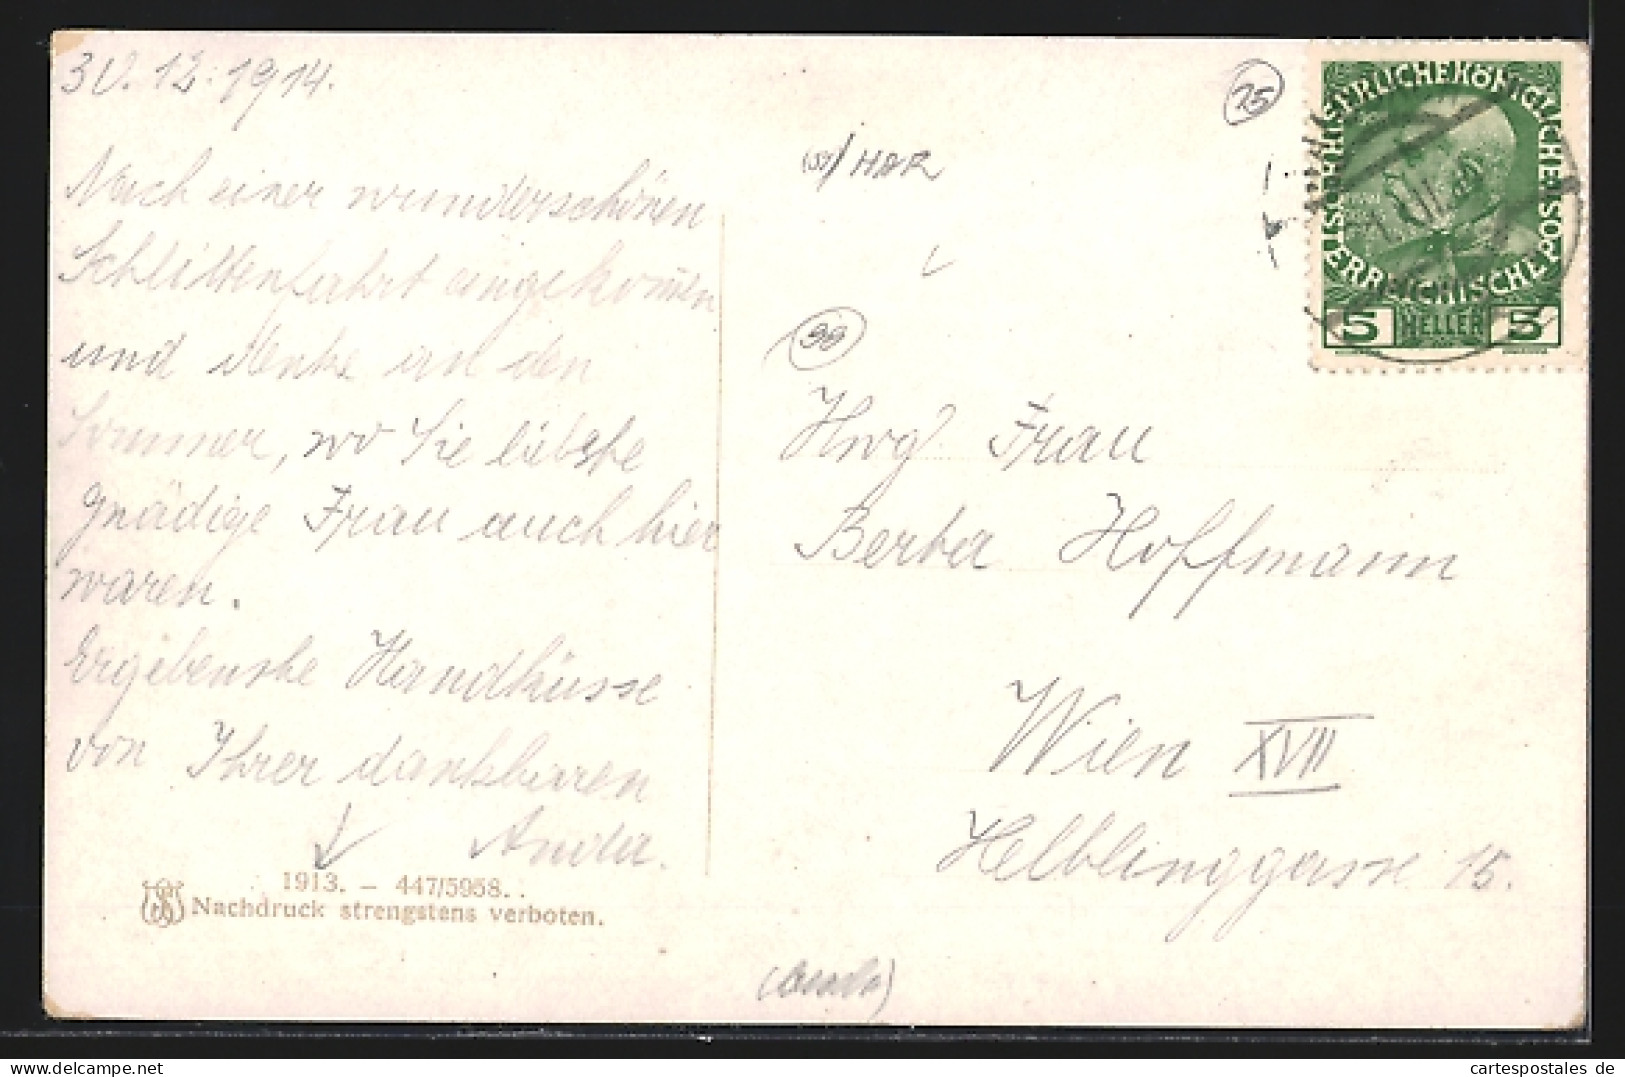 30.12.1914.
Nach einer wunderschönen
Schlittenfahrt angekommen
und denke an den
Sommer, wo Sie liebste
gnädige Frau auch hier
waren.
Ergebenste Handküsse
von Ihrer dankbaren
1913. – 447/5958..
Nachdruck strengstens verboten.
15
HAR
98
KAISERLICHE KÖNIGLICHE ÖSTERREICHISCHE POST
5 HELLER 5
Hwg Frau
Berta Hoffmann
Wien XVII
Helblinggasse 15.
cartespostales de